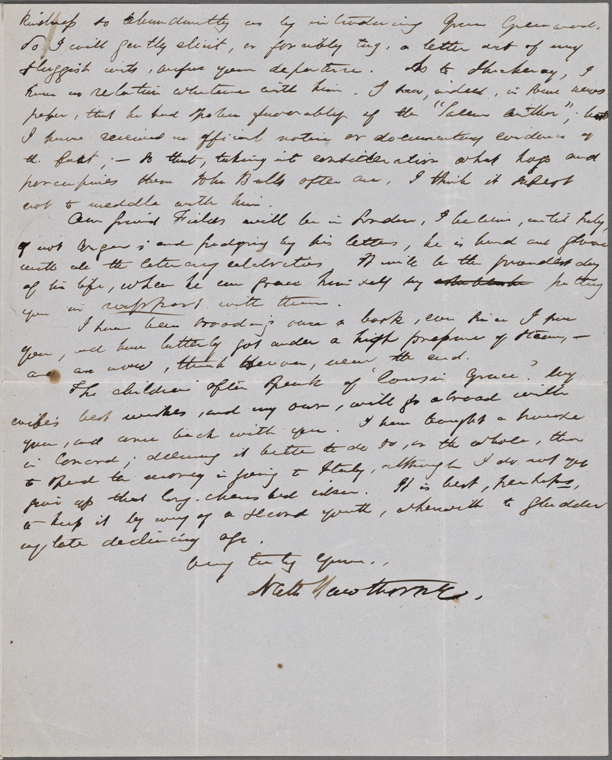 kindness so abundantly as by introducing Grace Greenwood.
So I will gently elicit, or forcibly tug, a letter out of my
sluggish wits, before your departure. As to Thackeray, I
have no relation whatever with him. I saw, indeed, in some news
paper, that he had spoken favorably of the "Salem Author"; but
I have received no official notice or documentary evidence of
the fact;—so that, taking into consideration what hogs and
porcupines these John Bulls often are, I think it safest
not to meddle with him.
Our friend Fields will be in London, I believe, until July,
if not longer; and judging by his letters, he is hand and glove
with all the literary celebrities. It will be the proudest day
of his life, when he can grace himself by putting
you in rapport with them.
I have been brooding over a book, ever since I saw
you, and have latterly got under a high pressure of steam,—
and am now, thank Heaven, near the end.
The children often speak of "Cousin Grace." My
wife's best wishes, and my own, will go abroad with
you, and come back with you. I have bought a house
in Concord; deeming it better to do so, on the whole, than
to spend the money in going to Italy, although I do not yet
give up that long-cherished idea. It is best, perhaps,
to keep it by way of a second youth, wherewith to gladden
my late declining age.
Very truly Yours,
Nath Hawthorne.